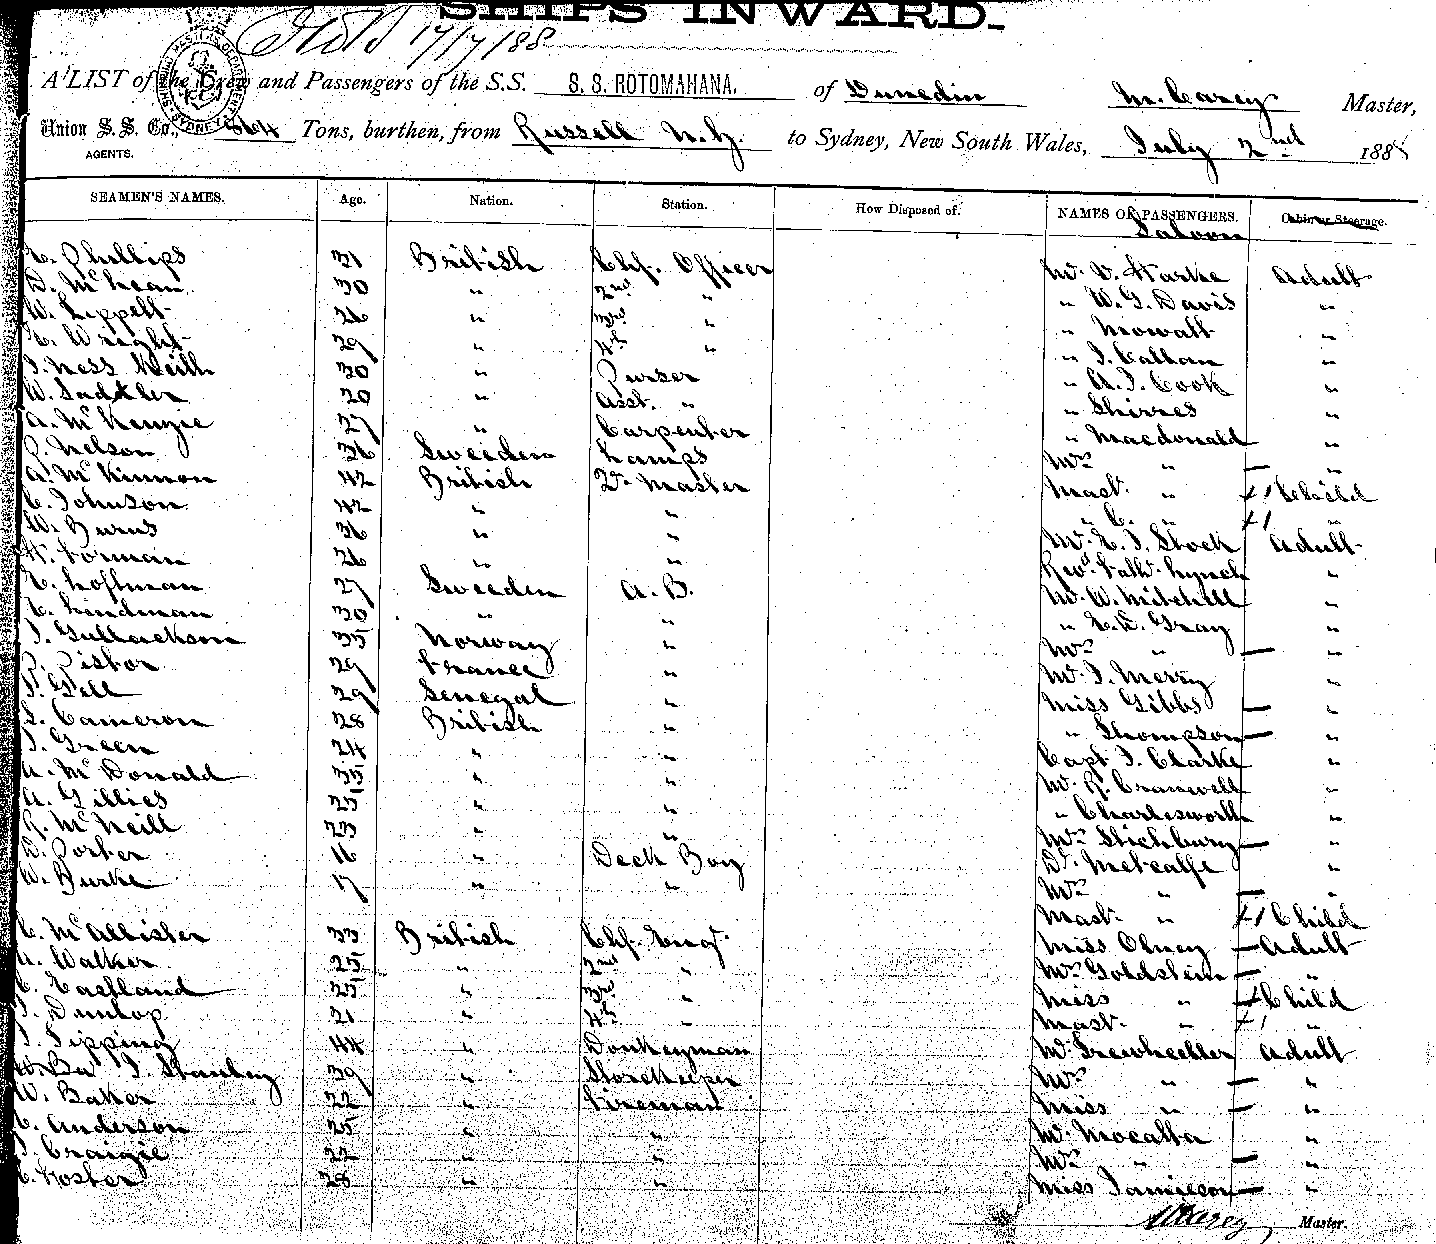 SHIPS INWARD.
17/7/88
A LIST of the Crew and Passengers of the S.S. S. S. ROTOMAHANA. of Dunedin M. Carey Master,
Union S. S. Co., 864 Tons, burthen, from Russell N.Z. to Sydney, New South Wales, July 2nd 188
AGENTS.
SEAMEN'S NAMES. Age. Nation. Station. How Disposed of. NAMES OF PASSENGERS. Cabin or Steerage.
Saloon
E. Phillips 31 British Chf. Officer Mr. V. Starke Adult
D. McLean 30 " 2nd " " W. G. Davis "
W. Lippett 26 " 3rd " " Mowatt "
E. Wright 29 " 4th " " J. Callan "
J. Ness Keith 30 " Purser " A. J. Cook "
W. Sadtler 20 " Asst. " " Shirres "
A. McKenzie 27 " Carpenter " Macdonald "
P. Nelson 36 Sweeden Lamps Mrs " "
A. McKinnon 42 British Qr. Master Mast. " 1 Child
C. Johnson 42 " " " C. " 1 "
W. Burns 36 " " Mr. E. J. Stock Adult
H. Forman 26 " " Revd. Fath. Lynch "
E. Loftman 27 Sweeden A. B. Mr. W. Mitchell "
E. Lindman 30 " " " Gray "
J. Gullackson 35 Norway " Mrs " "
P. Pistor 29 France " Mr. J. Merry "
P. Gill 29 Senegal " Miss Gibbs "
S. Cameron 28 British " " Thompson "
J. Green 24 " " Capt J. Clarke "
A. McDonald 35 " " Mr. R. Cranwell "
A. Gillies 25 " " " Charlesworth "
R. McNeill 23 " " Mrs Stichbury "
D. Porter 16 " Deck Boy Dr. Metcalfe "
W. Burke 17 " " Mrs " "
Mast. " 1 Child
C. McAllister 33 British Chf. Eng. Miss Olney Adult
A. Walker 25 " 2nd " Mrs Goldstein "
C. Eastland 25 " 3rd " Miss " Child
J. Dunlop 21 " 4th " Mast. " 1 "
J. Tipping 44 " Donkeyman Mr. Trewheeller Adult
J. Stanley 39 " Storekeeper Mrs " "
W. Baker 22 " Fireman Miss " "
C. Anderson 25 " " Mr. Mocatta "
J. Craigie 22 " " Mrs " "
C. Foster 28 " " Miss Jamieson "
M Carey Master.